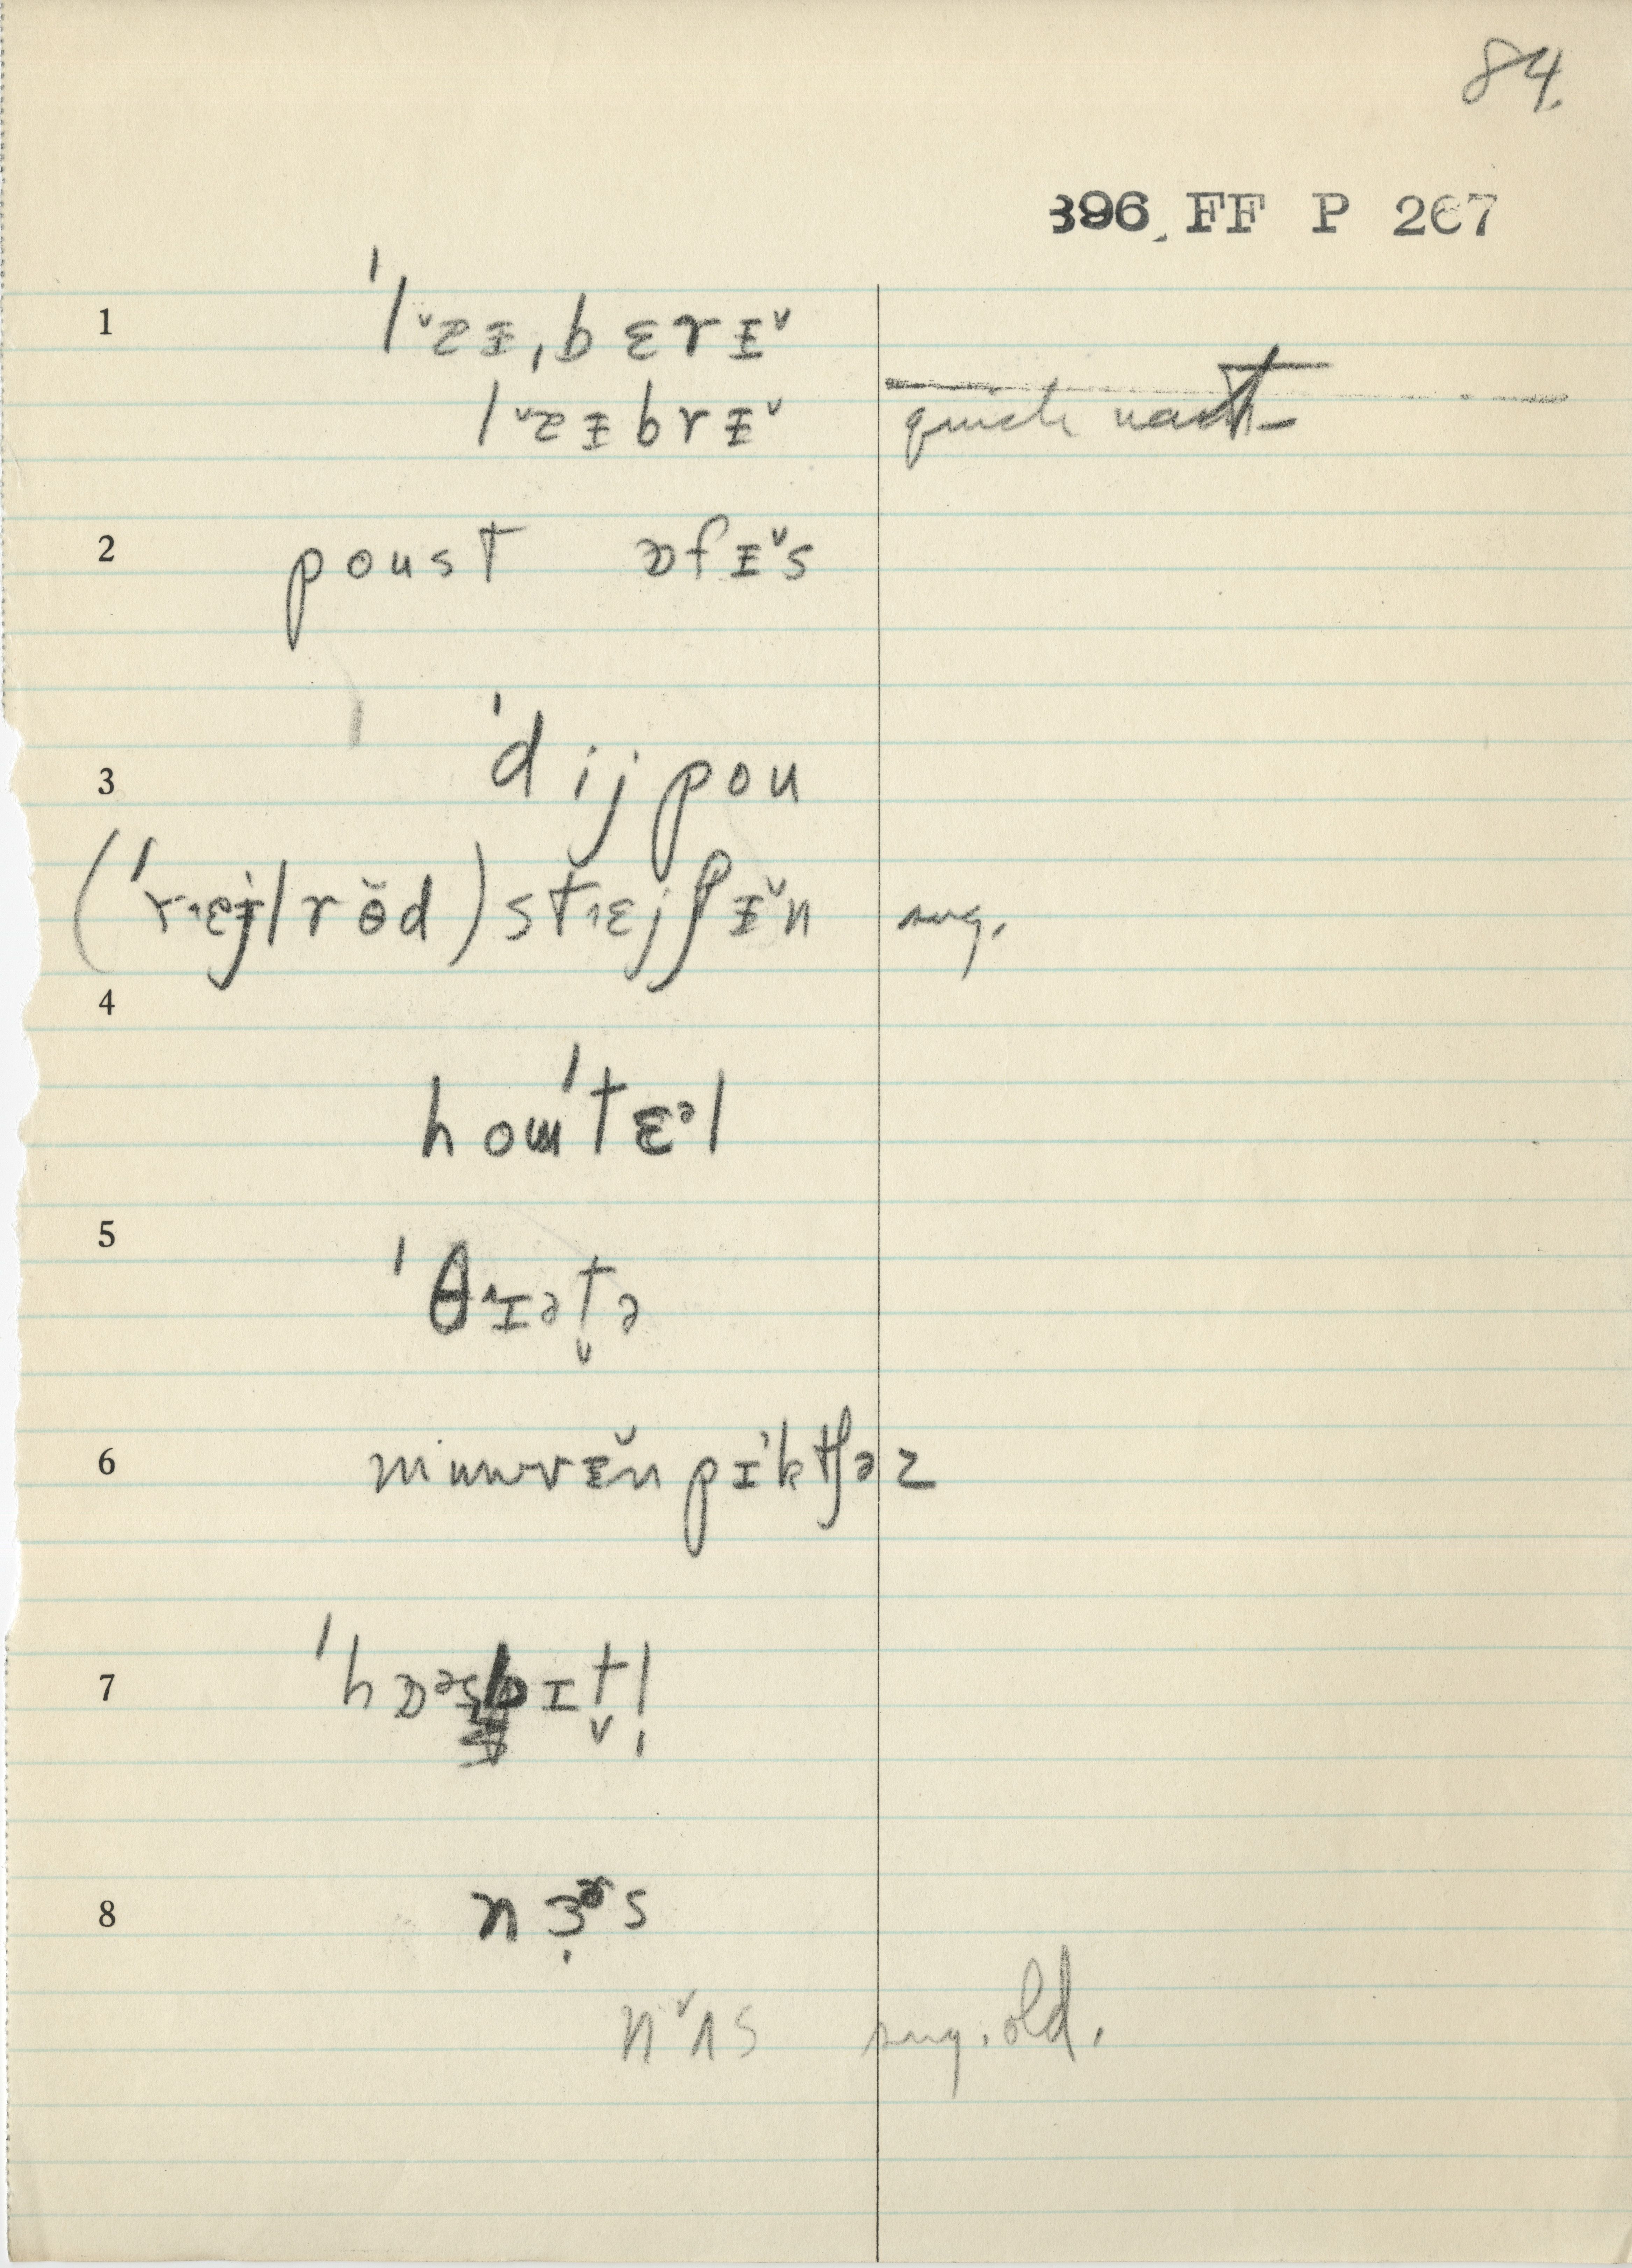 84.
396 FF P 267
1 ˈlˇzɪ̵ˌbɛrɪ̵ˇ
lˇzɪ̵brɪ̵ˇ quick
2 poust ɒfɪ̵ˇs
3 ˈdijpou
(ˈr˄ɛjlrɵ̆d) st˄ɛjʃɪ̵̆n sug.
4
houˈtɛᵊl
5 ˈθ˄ɪət̬ə
6 muwvɪ̵̆n pɪˈktʃəz
7 ˈhɒᵊspɪt̬l̩
8 nɜ̣ɚs
nˇʌs sug. old.